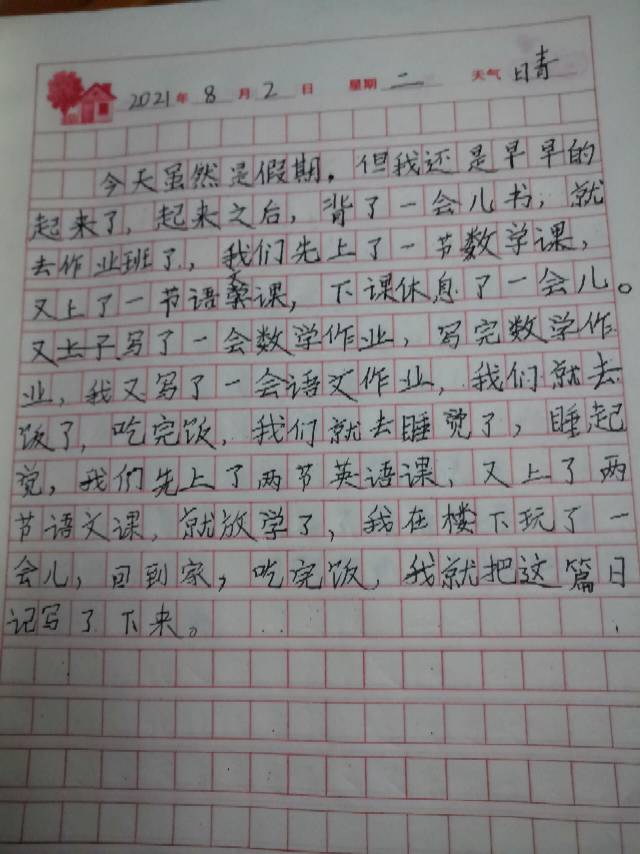 2021年 8月 2日 星期 二 天气 晴
今天虽然是假期，但我还是早早的
起来了，起来之后，背了一会儿书，就
去作业班了，我们先上了一节数学课，
又上了一节语文课，下课休息了一会儿。
又写了一会数学作业，写完数学作
业，我又写了一会语文作业，我们就去
饭了，吃完饭，我们就去睡觉了，睡起
觉，我们先上了两节英语课，又上了两
节语文课，就放学了，我在楼下玩了一
会儿，回到家，吃完饭，我就把这篇日
记写了下来。